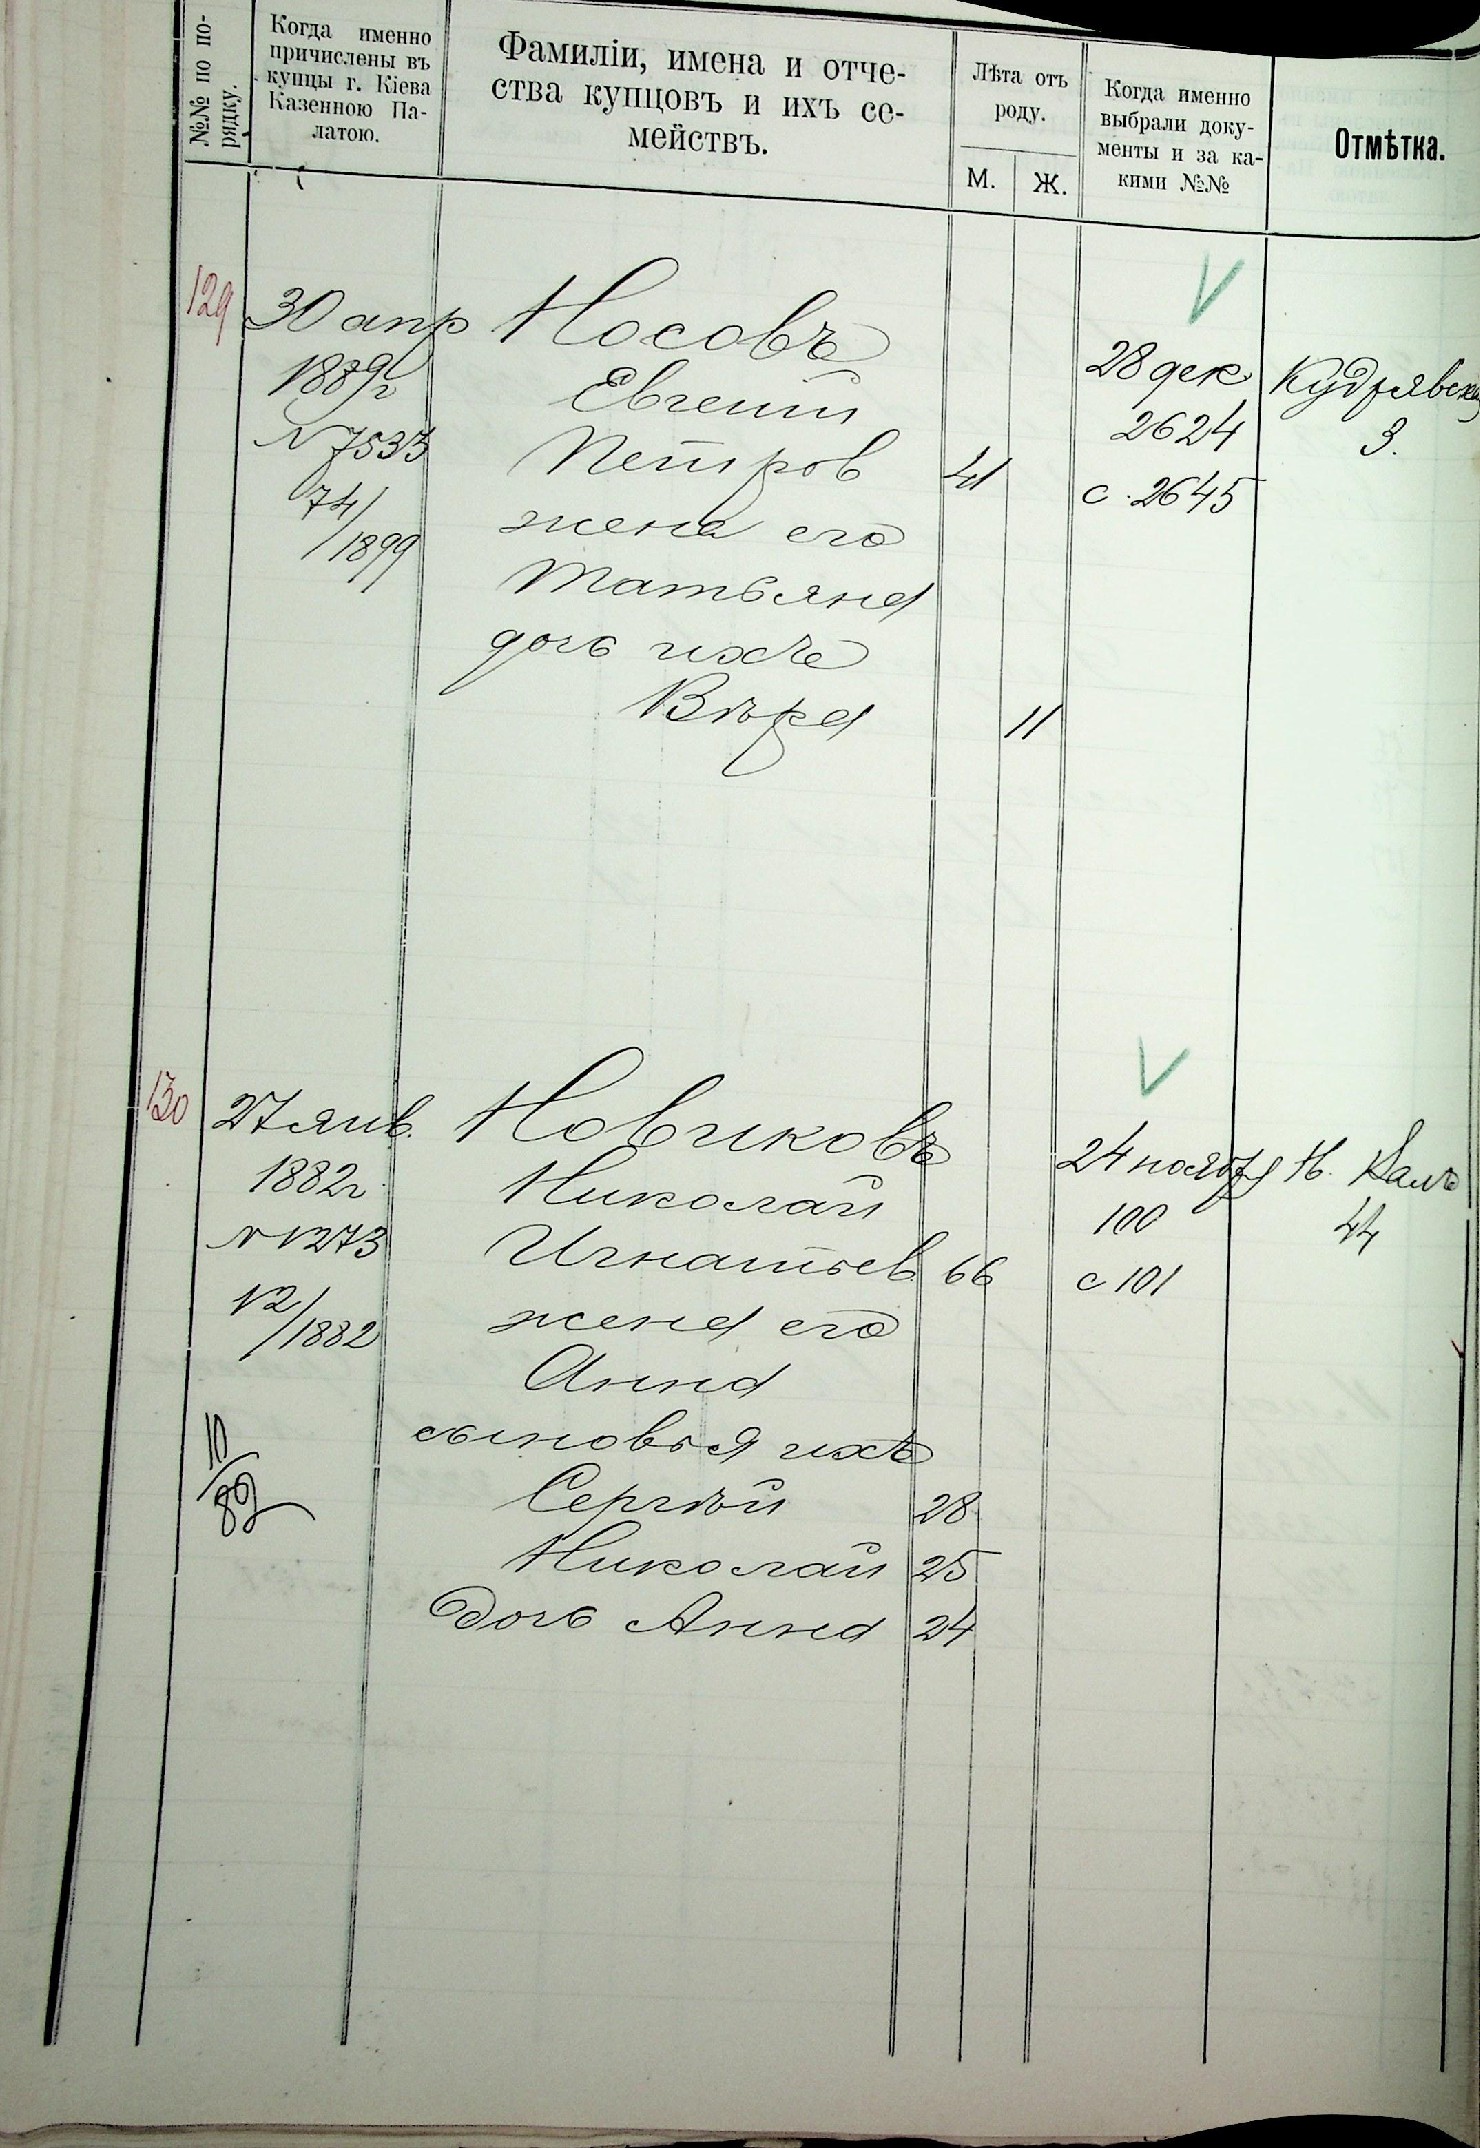 №№ по по-
рядку.
Когда именно
причислены въ
купцы г. Кіева
Казенною Па-
латою.
Фамиліи, имена и отче-
ства купцовъ и ихъ се-
мействъ.
Лѣта отъ
роду.
М.
Ж.
Когда именно
выбрали доку-
менты и за ка-
кими №№
Отмѣтка.
129
30 апр
1889г
№ 7533
74/1899
Носовъ
Евгеній
Петров 41
жена его
Татьяна
дочь ихъ
Вѣра 11
28 дек
2624
с. 2645
Кудрявск
3.
130
27 янв.
1882г
№ 1273
12/1882
10/89
Новиковъ
Николай
Игнатьев 66
жена его
Анна
сыновья ихъ
Сергѣй 28
Николай 25
Дочь Анна 24
24 ноября
100
с 101
Н. Валъ
44